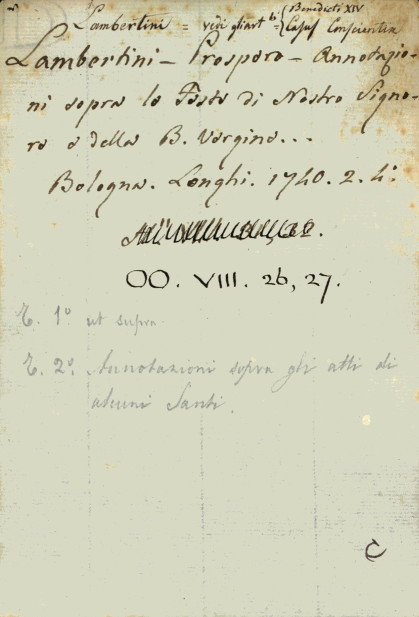 Lambertini = vedi gli art.li = { Benedicti XIV
Casus Conscientiæ
Lambertini - Prospero - Annotazio-
ni sopra le Feste di Nostro Signo-
re e della B. Vergine...
Bologna. Longhi. 1740. 2. 4.º
OO. VIII. 26, 27.
T. 1.º ut supra
T. 2.º Annotazioni sopra gli atti di
alcuni Santi.
C